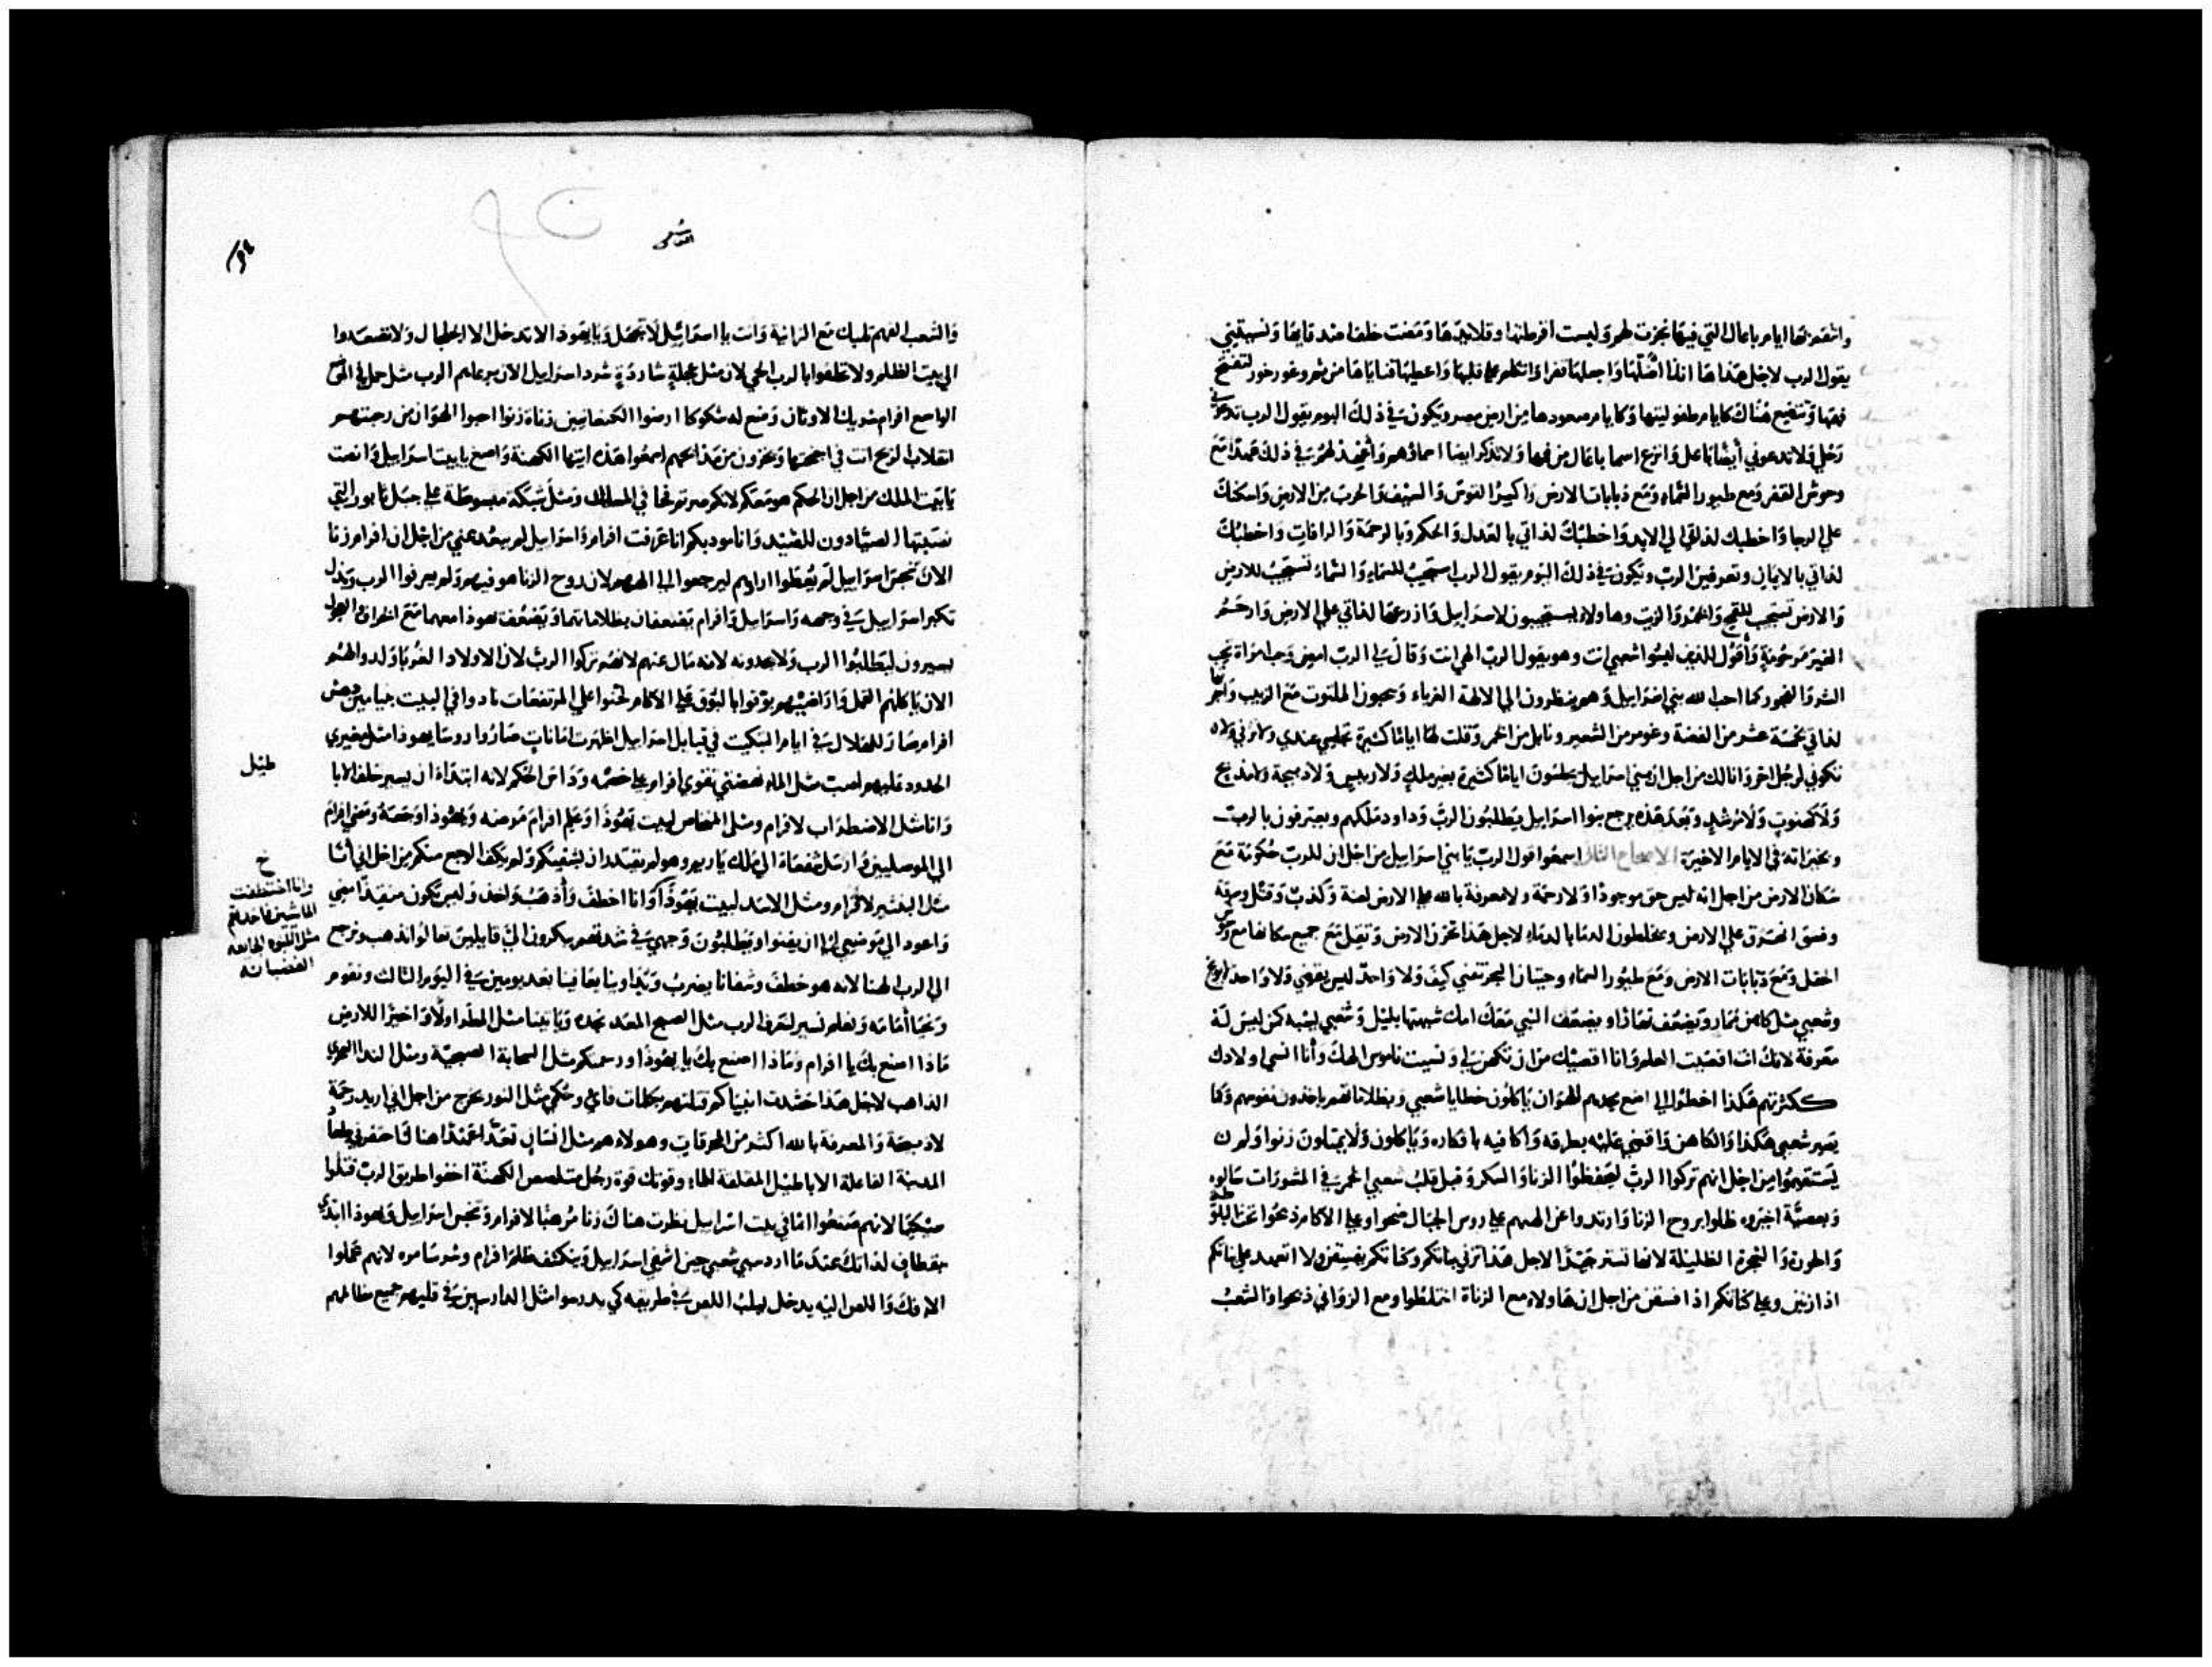 وانتقم منها ايام باعال التي فيها نجرت لهم ولبست اقرطتها وقلائدها ومضت خلف اصدقايها ونسيتني
يقول الرب لاجل هذا ها انذا اضلها واجعلها قفرا واتكلم على قلبها واعطيها قناياها من ثم وغور خور لتفتح
فهمها وتتضع هناك كايام طفوليتها وكايام صعودها من ارض مصر ويكون في ذلك اليوم يقول الرب تدعوني
رجلي ولا تدعوني ايضا باعل وانزع اسما باعال من فمها ولا تذكر ايضا اسماؤهم واعهد لهم في ذلك عهدا مع
وحوش القفر ومع طيور السماء ومع دبابات الارض واكسر القوس والسيف والحرب من الارض واسكنك
على الرجا واخطبك لذاتي الى الابد واخطبك لذاتي بالعدل والحكم وبالرحمة والرافات واخطبك
لذاتي بالايمان وتعرفين الرب ويكون في ذلك اليوم يقول الرب استجيب للسماء والسماء تستجيب للارض
والارض تستجيب للقمح والخمر والزيت وهاولاء يستجيبون لاسراييل وازرعها لذاتي على الارض وارحم
الغير مرحومة واقول للذين ليسوا شعبي انت وهو يقول الرب الهي انت وقال لي الرب امض وحب امراة تحب
الشر والفجور كما احب الله بني اسراييل وهم ينظرون الى الالهة الغرباء ويحبون الملتوت مع الزبيب واجر
لذاتي بخمسة عشر من الفضة وغومر من الشعير ونابل من الخمر وقلت لها اياما كثيرة تجلسي عندي ولا تزني ولا
تكوني لرجل اخر وانا لك من اجل ان بني اسراييل يجلسون اياما كثيرة بغير ملك ولا رييس ولا ذبيحة ولا مذبح
ولا كهنوت ولا مرشد وبعد هذه يرجع بنوا اسراييل يطلبون الرب وداود ملكهم ويعترفون بالرب
وبخيراته في الايام الاخيرة الاصحاح الثالث اسمعوا قول الرب يا بني اسراييل من اجل ان للرب حكومة مع
سكان الارض من اجل انه ليس حق موجودا ولا رحمة ولا معرفة بالله على الارض لعنة وكذب وقتل وسرقة
وفسق انهرق على الارض ويخلطون الدما بالدماء لاجل هذا تحزن الارض وتقل مع جميع سكانها مع وحوش
الحقل ومع دبابات الارض ومع طيور السماء وحيتان البحر تفنى كيف ولا واحد ليس يقضي ولا واحدا يوبخ
وشعبي مثل كاهن تمارى ويضعف نهارا ويضعف النبي معك امك شبهتها بليل وشعبي يشبه كمن ليس له
معرفة لانك انت اقصيت العلم وانا اقصيك من ان تكهن لي ونسيت ناموس الهك وانا انسى اولادك
ككثرتهم هكذا اخطوا الي اضع مجدهم للهوان ياكلون خطايا شعبي وبظلاماتهم ياخذون نفوسهم وكما
يصير شعبي هكذا والكاهن واقضي عليه بطرقه واكافيه بافكاره وياكلون ولا يمتلون زنوا ولم
يستقيموا من اجل انهم تركوا الرب ليحفظوا الزنا والسكر وقبل قلب شعبي الخمر في المشورات سالوه
وبعصية اخبروه ظلوا بروح الزنا وارتدوا عن الههم على روس الجبال ضحوا وعلى الاكام ذبحوا تحت البلوط
والحور والشجرة الظليلة لانها تستر جيدا لاجل هذا تزني بناتكم وكناتكم يفسقن ولا اتعهد على بناتكم
اذا زنين وعلى كناتكم اذا فسقن من اجل ان هاولاء مع الزناة اختلطوا ومع الزواني ذبحوا والشعب
شعر
القاسى
والشعب الفهم تلبك مع الزانية وانت يا اسراييل لا تجهل ويا يهوذا لا تدخل الى الجلجال ولا تصعدوا
الى بيت الظلم ولا تحلفوا بالرب الحي لان مثل عجلة شاردة شرد اسراييل الان يرعاهم الرب مثل حمل في الموضع
الواسع افرام شريك الاوثان وضع له شكوكا ارضوا الكنعانيين زناة زنوا احبوا الهوان من رجتهم
انقلاب الريح انت في اجنحتها ويخزون من مذابحهم اسمعوا هذه ايتها الكهنة واصغ يا بيت اسراييل وانصت
يا بيت الملك من اجل ان الحكم هو معكم لانكم صرتم فخا في المسالك ومثل شبكة مبسوطة على جبل تابور التي
نصبتها الصيادون للصيد وانا مودبكم انا عرفت افرام واسراييل لم يبعد عني من اجل ان افرام زنا
الان تنجس اسراييل لم يعطوا اراهم ليرجعوا الى الههم لان روح الزنا هو فيهم ولم يعرفوا الرب ويذل
تكبر اسراييل في وجهه واسراييل وافرام يضعفان بظلاماتهما ويضعف يهوذا معهما مع الخراف والعجول
يسيرون ليطلبوا الرب ولا يجدونه لانه مال عنهم لانهم تركوا الرب لان الاولاد الغربا ولدوا لهم
الان ياكلهم القمل واراضيهم بوقوا بالبوق على الاكام لحنوا على المرتفعات نادوا في البيت بنيامين دهش
افرام صار للضلال في ايام التبكيت في قبايل اسراييل اظهرت امانات صاروا روسا يهوذا مثل مغيري
الحدود عليهم اصب مثل الماء نهضتي تقوى افرام على خصمه وداس الحكم لانه ابتدا ان يسير خلف الابا
وانا مثل الاضطراب لافرام ومثل المنخاس لبيت يهوذا وعلم افرام مرضه ويهوذا وجعه ومضى افرام
الى الموصليين وارسل شفعاة الى الملك ياريم وهو لم يقتدر ان يشفيكم ولم يكف الوجع منكم من اجل اني انا
مثل النمر لافرام ومثل الاسد لبيت يهوذا وانا اخطف واذهب واخذ وليس يكون منقذا امضي
واعود الى موضعي الى ان يفنوا ويطلبون وجهي في شدتهم يبكرون الي قايلين تعالوا نذهب ونرجع
الى الرب الهنا لانه هو خطف وشفانا يضرب ويداوينا يعافينا بعد يومين في اليوم الثالث ونقوم
ونحيا امامه ونعلم نسير لنعرف الرب مثل الصبح المعد نجده وياتينا مثل المطر اولا واخيرا للارض
ماذا اصنع بك يا افرام وماذا اصنع بك يا يهوذا ورحمتكم مثل السحابة الصبحية ومثل الندا السحري
الذاهب لاجل هذا حشدت انبياكم قتلتهم بكلمات فاي وحكمي مثل النور يخرج من اجل اني اريد رحمة
لا ذبيحة والمعرفة بالله اكثر من المحرقات وهولاء هم مثل انسان تعدا عهدا هنا
المدينة الفاعلة الاباطيل المقلقة الماء وقوتك قوة رجل متلصص الكهنة اخفوا طريق الرب قتلوا
لانهم صنعوا اثما في بيت اسراييل نظرت هناك زنا مرعبا لافرام وتنجس اسراييل ويهوذا ابتدي
بقطاف لذاتك عندما اردد سبي شعبي حين اشفي اسراييل وينكشف ظلم افرام وشر سامره لانهم عملوا
الافك واللص اليه يدخل يسلب اللص في طريقه كي يدرسوا مثل الدارسين في قلبهم جميع مظالمهم
طيل
خ
وانا اختطفت
مثل اللبوة الجايعه
الغضبانه